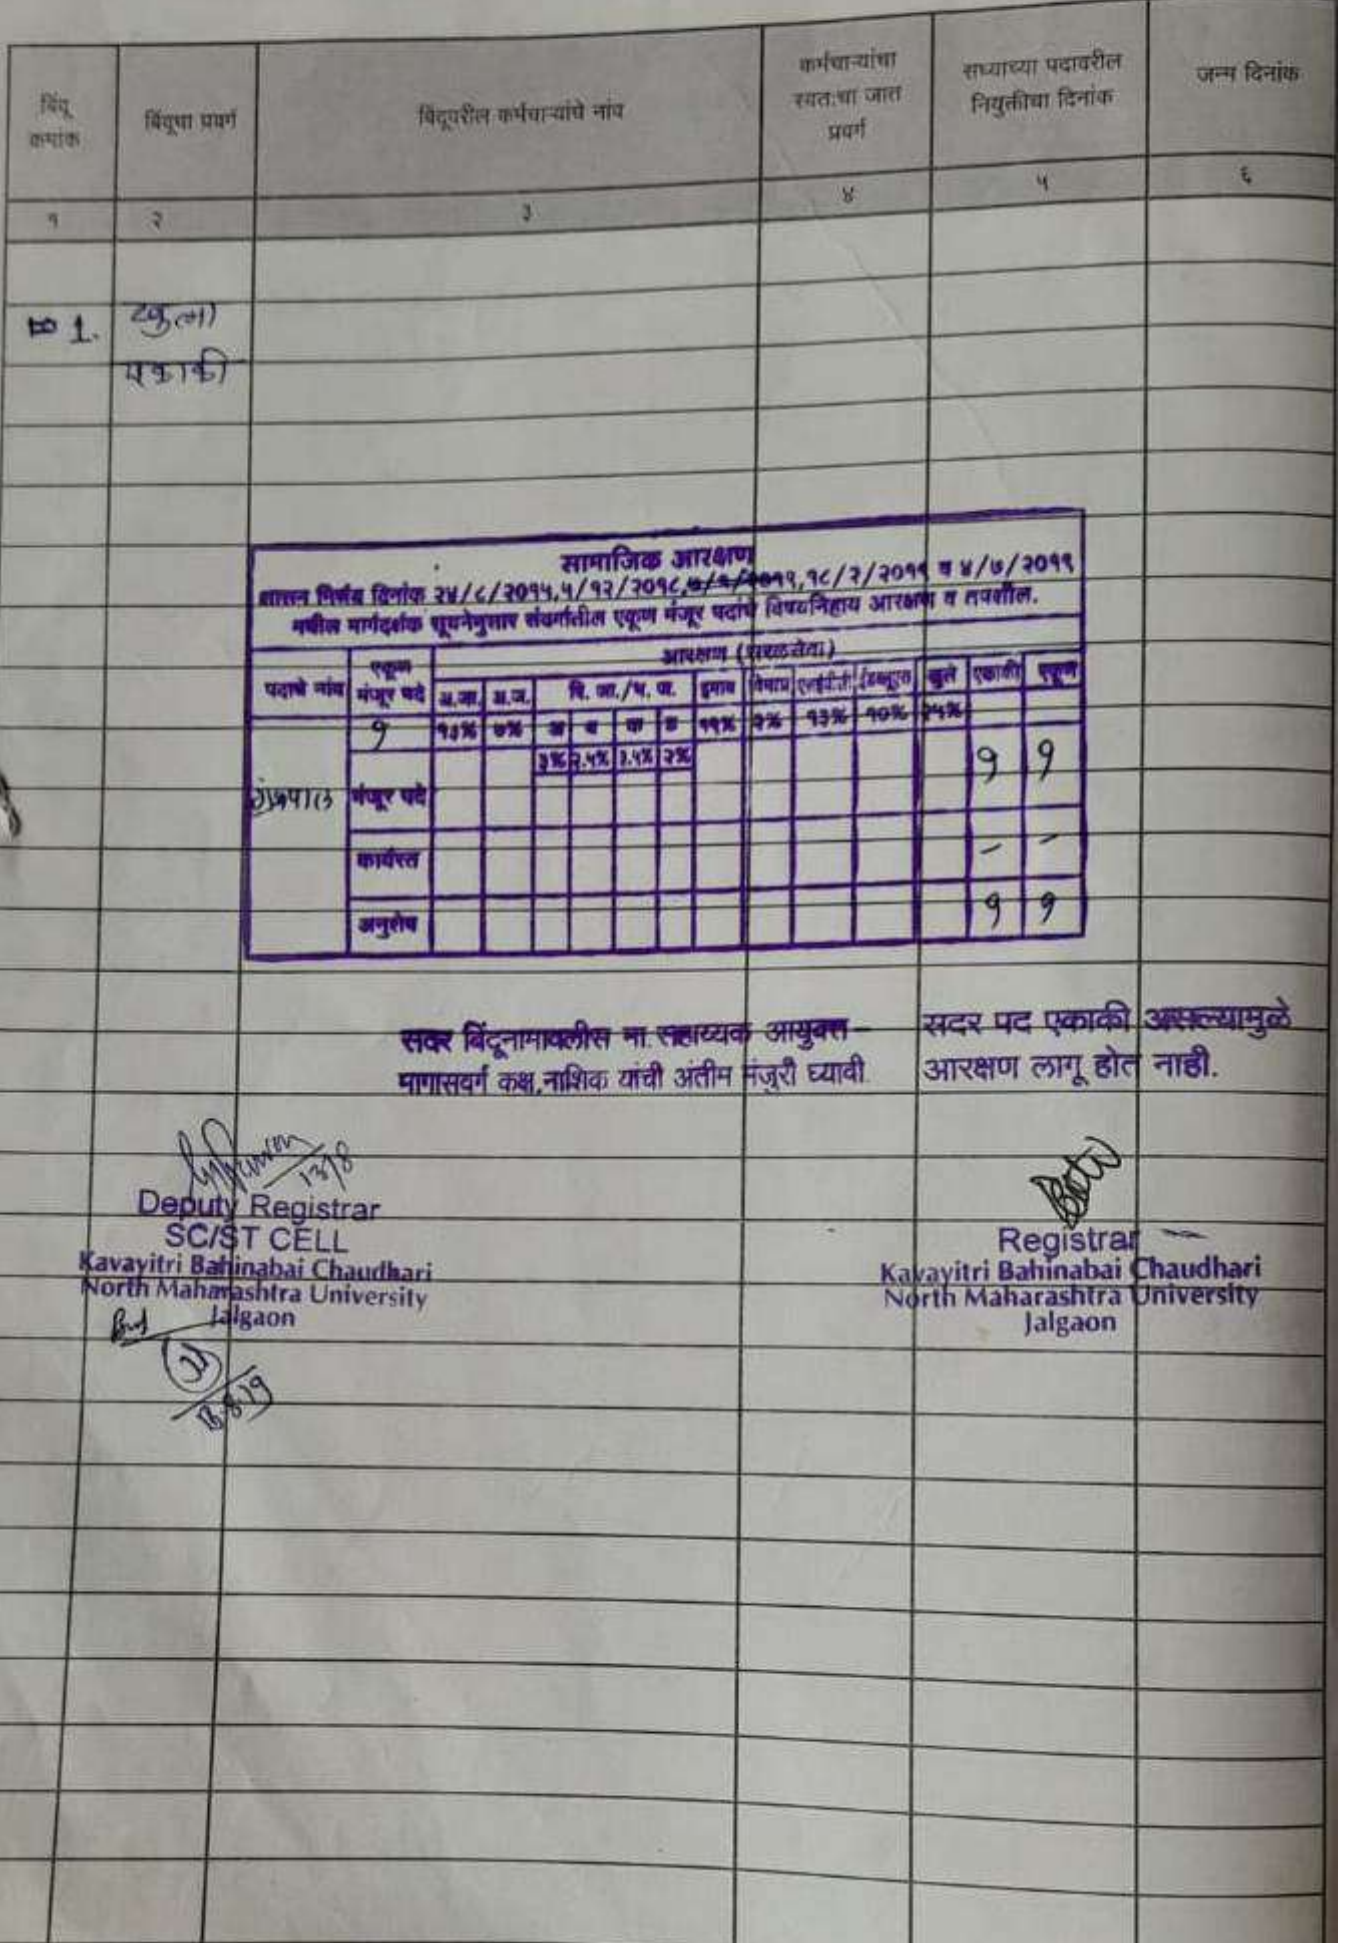 बिंदू क्रमांक
बिंदूचा प्रवर्ग
बिंदूवरील कर्मचाऱ्यांचे नांव
कर्मचाऱ्यांचा स्वतःचा जात प्रवर्ग
सध्याच्या पदावरील नियुक्तीचा दिनांक
जन्म दिनांक
१ २ ३ ४ ५ ६
1. खुला
एकाकी
सामाजिक आरक्षण
शासन निर्णय दिनांक २४/८/२०१५,५/१२/२०१८, १८/२/२०१९ व ४/७/२०१९
मधील मार्गदर्शक सूचनेनुसार संवर्गातील एकूण मंजूर पदांचे विषयनिहाय आरक्षण व तपशील.
पदाचे नांव एकूण मंजूर पदे आरक्षण (सरळसेवा)
अ.जा. अ.ज. वि. जा./भ. ज. इमाव विमाप्र एसईबीसी ईडब्ल्यूएस खुले एकाकी एकूण
१ १३% ७% अ ब क ड १९% २% १३% १०% २५%
३% २.५% ३.५% २%
ग्रंथपाल मंजूर पदे १ १
कार्यरत - -
अनुशेष १ १
सदर बिंदूनामावलीस मा. सहाय्यक आयुक्त –
मागासवर्ग कक्ष, नाशिक यांची अंतीम मंजुरी घ्यावी
सदर पद एकाकी असल्यामुळे
आरक्षण लागू होत नाही.
13/8
Deputy Registrar
SC/ST CELL
Kavayitri Bahinabai Chaudhari
North Maharashtra University
Jalgaon
13.8.19
Registrar
Kavayitri Bahinabai Chaudhari
North Maharashtra University
Jalgaon